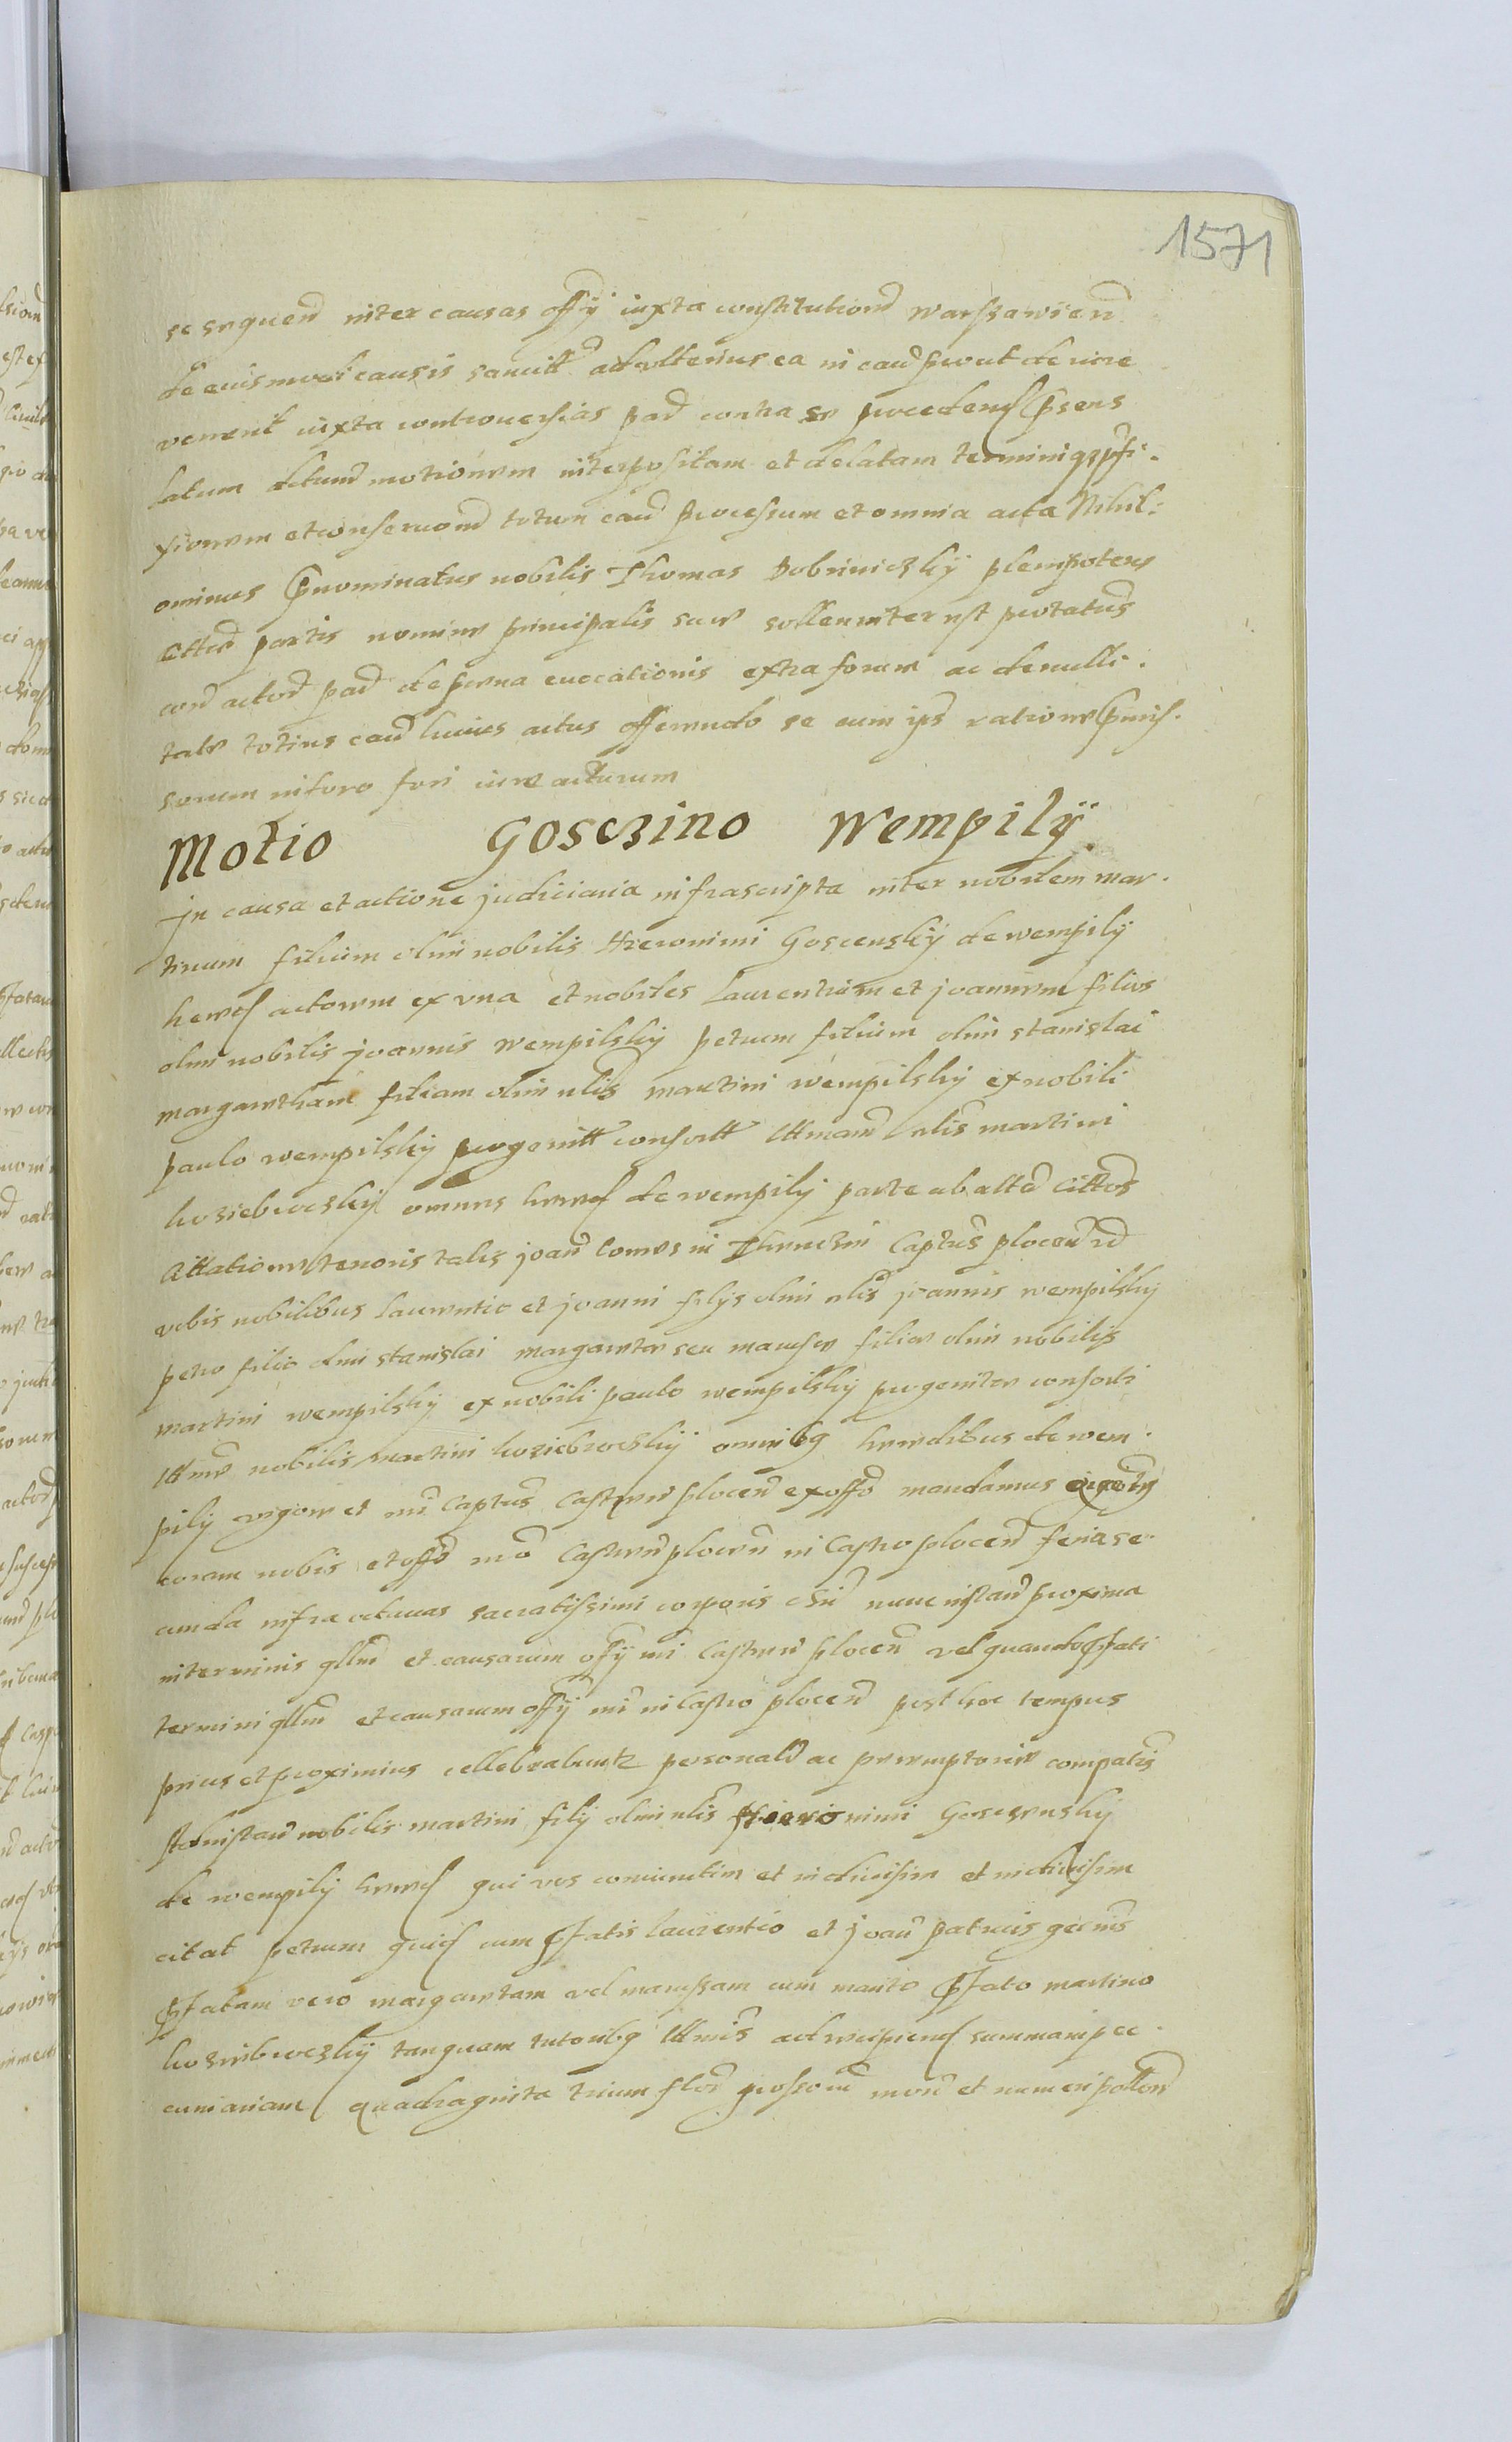 1571
se sequend inter causas offy iuxta constitutiond warszawiend
de eiusmodi causis sancitt ad vlterius ea in caud prout de iure
venerit iuxta controuersias pard contra se procedend Psens
latum motionem interpositam et delatam termini
xionem et conseruond totum caud processum et omnia acta Nihil:
ominus Pnominatus nobilis Thomas Dobriniczky plenipotens
partis nomine principalis sue sollenniter est protatus
cord actord pard de pena euocationis extra forum ac de nulli.
tate totius caud huius actus offerendo se cum ips ratione Pmis.
sorum in foro fori iure acturum
Motio Gosczino Wempilÿ
In causa et actione judiciaria infrascripta inter nobilem mar.
tinum filium olim nobilis Hieronimi Goscensky de wempily
hered actorem ex vna et nobiles Laurentium et joannem filios
olim nobilis joannis wempilsky petrum filium olim stanislai
margaretham filiam olim nlis martini wempilsky ex nobili
paulo wempilsky progenitt consortt nlis martini
omnes hered de wempily parte ab altera cittos
Cittatione tenoris talis joan comes in Captus plocen
vobis nobilibus laurentio et joanni filys olim nlis joannis wempilsky
petro filio olim stanislai margarete seu filie olim nobilis
martini wempilsky ex nobili paulo wempilsky progenite consorti
nobilis martini omnibq heredibus de wem.
pily vigore et mi Captus Castren plocen ex offo mandamus
coram nobis et offo mo Castren plocen in Castro plocen feria se
cunda infra octauas sacratissimi corporis nunc instan proxima
in terminis qllm et causarum offy mi Castren plocen vel quando Pfati
termini qllm et causarum offy mi in Castro plocen post hoc tempus
prius et proximius cellebrabuntr personalr ac peremptorie compatis
Ad instan nobilis martini fily olim nlis Hieronimi Goscensky
de wempily hered qui vos coniunctim et indiuisim et indiuisim
citat petrum quid cum Pfatis laurentio et joan patruis
Pfatam vero margaretam vel maruszam cum marito Pfato martino
tanquam tutoribq ad recipiend summam pec
cuniariam quadraginta trium flor mon et numeri pollon